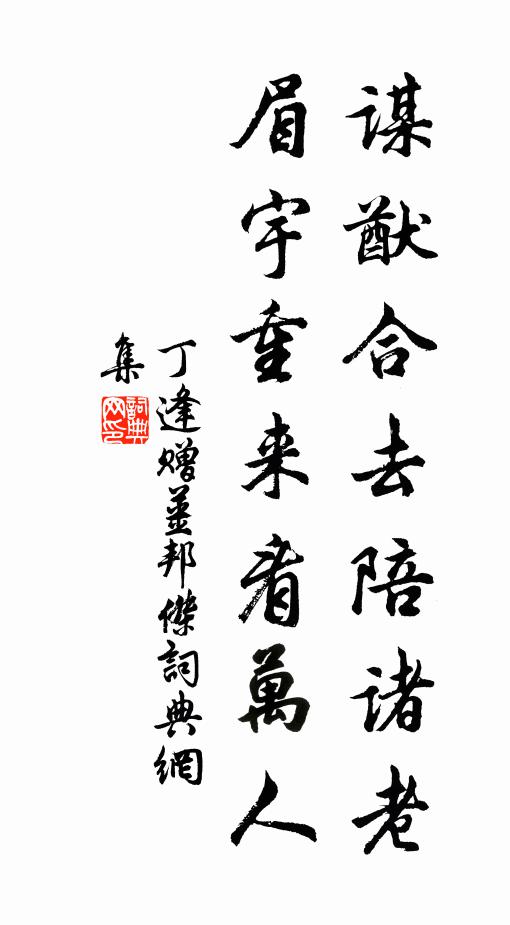 謀猷合去陪诸老
眉宇重来看萬人
丁逢赠姜邦傑詞典網
集
詞典
网印